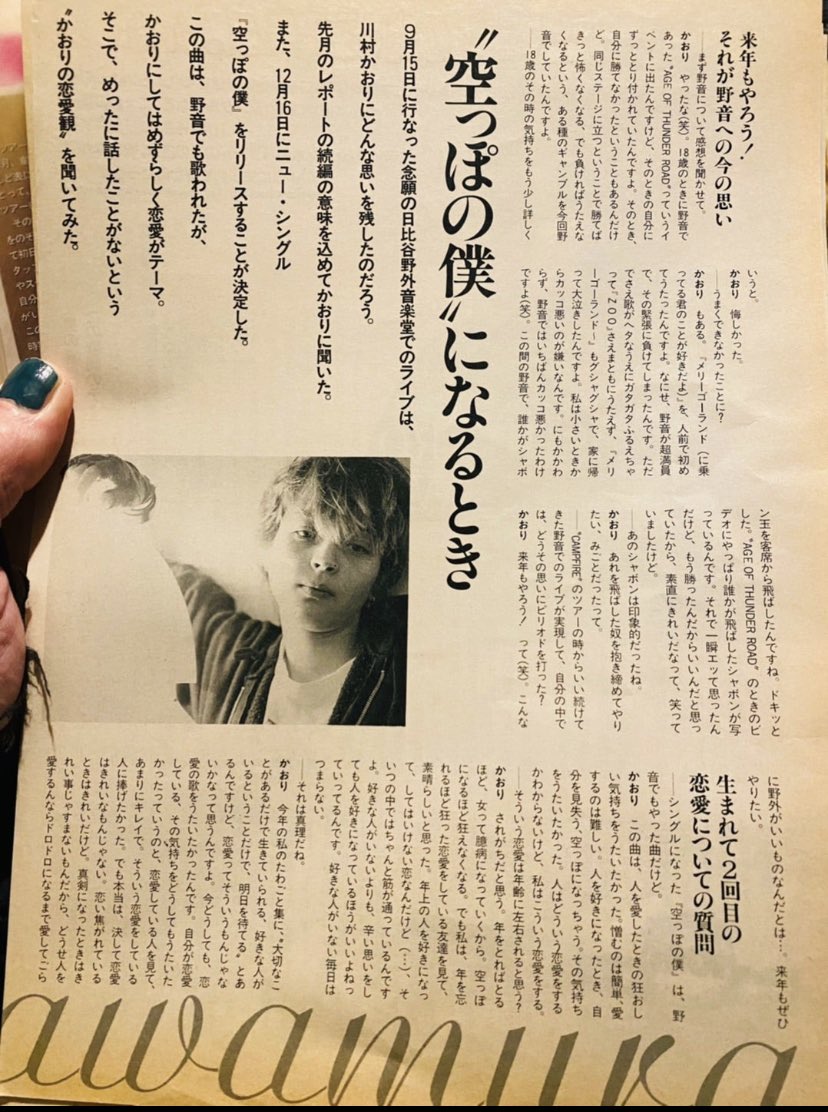 来年もやろう!
それが野音への今の思い
——まず野音について感想を聞かせて。
かおり やったな(笑)。18歳のときに野音で
あった“AGE OF THUNDER ROAD”っていうイ
ベントに出たんですけど、そのときの自分に
ずっととり付かれていたんですよ。そのとき、
自分に勝てなかったということもあるんだけ
ど。同じステージに立つということで勝てば
きっと怖くなくなる、でも負ければうたえな
くなるという、ある種のギャンブルを今回野
音でしていたんですよ。
——18歳のその時の気持ちをもう少し詳しく
いうと。
かおり 悔しかった。
——うまくできなかったことに?
かおり もある。『メリーゴーランド(に乗
ってる君のことが好きだよ)』を、人前で初め
てうたったんですよ。なにせ、野音が超満員
で、その緊張に負けてしまったんです。ただ
でさえ歌がヘタなうえにガタガタふるえちゃ
って『ZOO』さえまともにうたえず、『メリ
ーゴーランド〜』もグシャグシャで、家に帰
って大泣きしたんですよ。私は小さいときか
らカッコ悪いのが嫌いなんです。にもかかわ
らず、野音ではいちばんカッコ悪かったわけ
ですよ(笑)。この間の野音で、誰かがシャボ
ン玉を客席から飛ばしたんですね。ドキッと
した。“AGE OF THUNDER ROAD”のときのビ
デオにやっぱり誰かが飛ばしたシャボンが写
っているんです。それで一瞬エッて思ったん
だけど、もう勝ったんだからいいんだと思っ
ていたから、素直にきれいだなって、笑って
いましたけど。
——あのシャボンは印象的だったね。
かおり あれを飛ばした奴を抱き締めてやり
たい、みごとだったって。
——“CAMPFIRE”のツアーの時からいい続けて
きた野音でのライブが実現して、自分の中で
は、どうその思いにピリオドを打った?
かおり 来年もやろう! って(笑)。こんな
に野外がいいものなんだとは…。来年もぜひ
やりたい。
“空っぽの僕”になるとき
9月15日に行なった念願の日比谷野外音楽堂でのライブは、
川村かおりにどんな思いを残したのだろう。
先月のレポートの続編の意味を込めてかおりに聞いた。
また、12月16日にニュー・シングル
『空っぽの僕』をリリースすることが決定した。
この曲は、野音でも歌われたが、
かおりにしてはめずらしく恋愛がテーマ。
そこで、めったに話したことがないという
“かおりの恋愛観”を聞いてみた。
生まれて2回目の
恋愛についての質問
——シングルになった『空っぽの僕』は、野
音でもやった曲だけど。
かおり この曲は、人を愛したときの狂おし
い気持ちをうたいたかった。憎むのは簡単、愛
するのは難しい。人を好きになったとき、自
分を見失う、空っぽになっちゃう。その気持ち
をうたいたかった。人はどういう恋愛をする
かわからないけど、私はこういう恋愛をする。
——そういう恋愛は年齢に左右されると思う?
かおり されがちだと思う。年をとればとる
ほど、女って臆病になっていくから。空っぽ
になるほど狂えなくなる。でも私は、年を忘
れるほど狂った恋愛をしている友達を見て、
素晴らしいと思った。年上の人を好きになっ
て、してはいけない恋なんだけど(…)、そ
いつの中ではちゃんと筋が通っているんです
よ。好きな人がいないよりも、辛い思いをし
ても人を好きになっているほうがいいよねっ
ていってるんです。好きな人がいない毎日は
つまらない。
——それは真理だね。
かおり 今年の私のたわごと集に、“大切なこ
とがあるだけで生きていられる、好きな人が
いるということだけで、明日を待てる”とあ
るんですけど、恋愛ってそういうもんじゃな
いかなって思うんですよ。今どうしても、恋
愛の歌をうたいたかったんです。自分が恋愛
している、その気持ちをどうしてもうたいた
かったっていうのと、恋愛している人を見て、
あまりにキレイで、そういう恋愛をしている
人に捧げたかった。でも本当は、決して恋愛
はきれいなもんじゃない。恋い焦がれている
ときはきれいだけど。真剣になったときはき
れい事じゃすまないもんだから、どうせ人を
愛するんならドロドロになるまで愛してごら
awamura